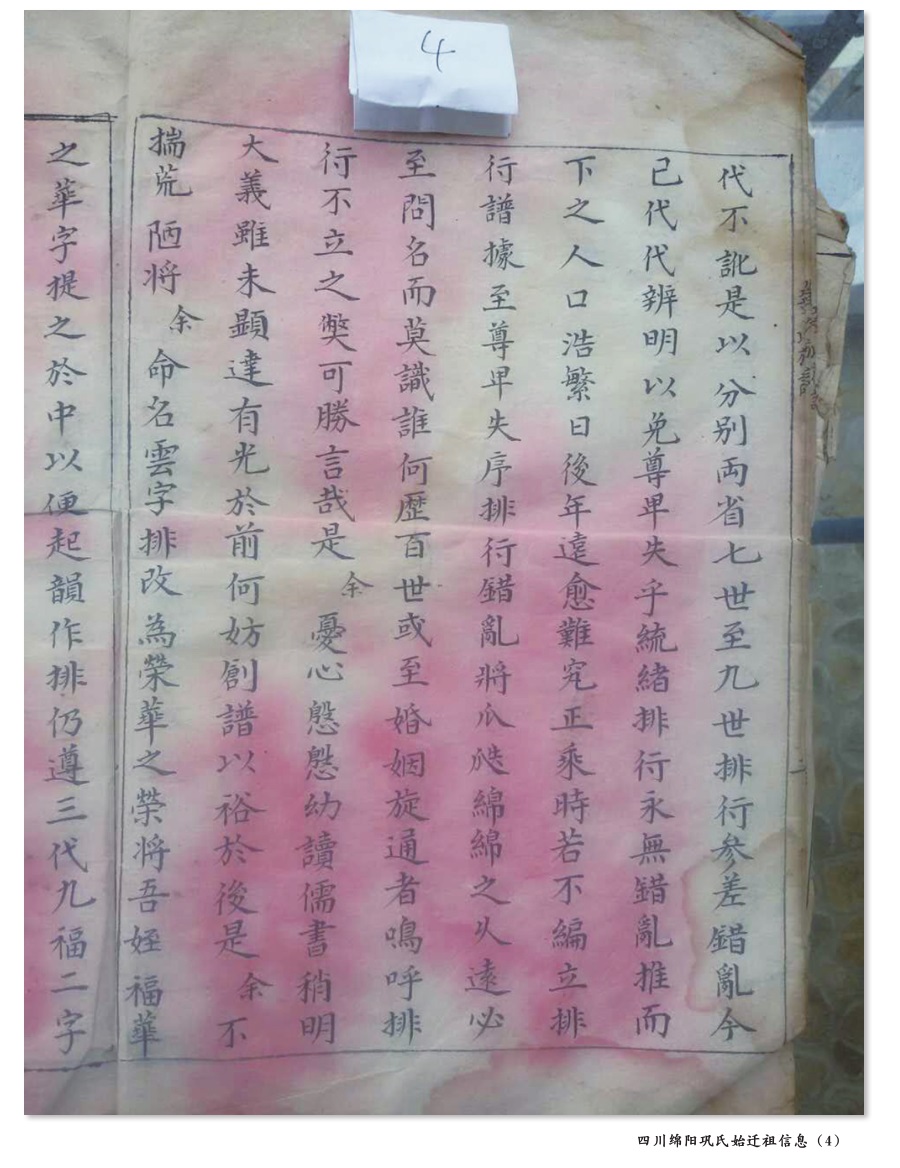 4
代不訛是以分別両省七世至九世排行参差錯亂今
已代代辨明以免尊卑失乎統緒排行永無錯亂推而
下之人口浩繁日後年遠愈難究正乘時若不編立排
行譜據至尊卑失序排行錯亂將瓜瓞綿綿之久遠必
至問名而莫識誰何歷百世或至婚姻旋通者鳴呼排
行不立之獘可勝言哉是余憂心慇慇幼讀儒書稍明
大義雖未顯達有光於前何妨創譜以裕於後是余不
揣荒陋将余命名雲字排改為榮華之榮将吾姪福華
之華字提之於中以便起韻作排仍遵三代九福二字
四川绵阳巩氏始迁祖信息（4）